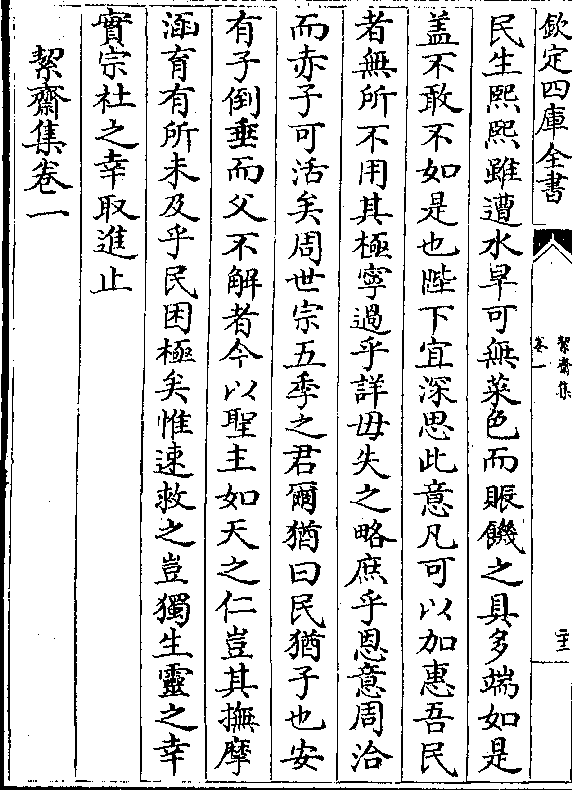 欽定四庫全書
絜齋集
卷一
二十三
民生熙熙雖遭水旱可無菜色而賑饑之具多端如是
蓋不敢不如是也陛下宜深思此意凡可以加惠吾民
者無所不用其極寧過乎詳毋失之略庶乎恩意周洽
而赤子可活矣周世宗五季之君爾猶曰民猶子也安
有子倒垂而父不解者今以聖主如天之仁豈其撫摩
涵育有所未及乎民困極矣惟速救之豈獨生靈之幸
實宗社之幸取進止
絜齋集卷一